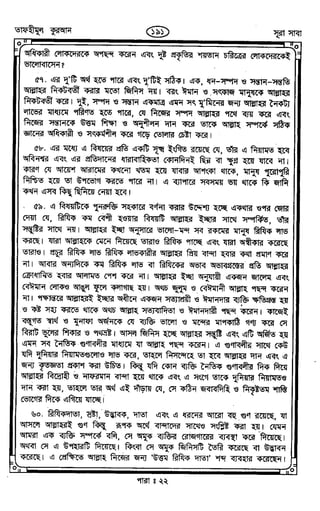 তাফহীমুল কুরআন
১৯১
সূরা সাবা
অধিকারী লোকদেরকে অপছন্দ করেন এবং দুষ্ট প্রকৃতির শয়তান চরিত্রের লোকদেরকেই
ভালোবাসেন?
৫৭. এর দু'টি অর্থ হতে পারে এবং দু'টিই সঠিক। এক, ধন-সম্পদ ও সন্তান-সন্ততি
আল্লাহর নিকটবর্তী করার মতো জিনিস নয়। বরং ঈমান ও সৎকাজ মানুষকে আল্লাহর
নিকটবর্তী করে। দুই, সম্পদ ও সন্তান একমাত্র এমন সৎ মু'মিনের জন্য আল্লাহর নৈকট্য
লাভের মাধ্যমে পরিণত হতে পারে, যে নিজের সম্পদ আল্লাহর পথে ব্যয় করে এবং
নিজের সন্তানকে উত্তম শিক্ষা ও অনুশীলন দান করে তাকে আল্লাহ সম্পর্কে সঠিক
জ্ঞানের অধিকারী ও সৎকর্মশীল করে গড়ে তোলার চেষ্টা করে।
৫৮. এর মধ্যে এ বিষয়ের প্রতি একটি সূক্ষ্ম ইংগিত রয়েছে যে, তাঁর এ নিয়ামত হবে
অবিনশ্বর এবং এর প্রতিদানের ধারাবাহিকতা কোনদিনই ছিন্ন বা ক্ষুণ্ণ হয়ে যাবে না।
কারণ যে দানের আগামীতে কখনো খতম হয়ে যাবার আশংকা থাকে, মানুষ পুরোপুরি
নিশ্চিন্ত হয়ে তা উপভোগ করতে পারে না। এ ব্যাপারে সবসময় ভয় থাকে কি জানি
কখন এসব কিছু ছিনিয়ে নেয়া হবে।
৫৯. এ বিষয়টিকে পুনরুক্তি সহকারে বর্ণনা করার উদ্দেশ্য হচ্ছে একথার ওপর জোর
দেয়া যে, রিযিক কম বেশী হওয়ার বিষয়টি আল্লাহর ইচ্ছার সাথে সম্পর্কিত, তাঁর
সন্তুষ্টির সাথে নয়। আল্লাহর ইচ্ছা অনুসারে ভালো-মন্দ সব রকমের মানুষ রিযিক লাভ
করছে। যারা আল্লাহকে মেনে নিয়েছে তারাও রিযিক পাচ্ছে এবং যারা অস্বীকার করেছে
তারাও। প্রচুর রিযিক লাভ রিযিক লাভকারীর আল্লাহর প্রিয় বান্দা হবার কথা প্রমাণ করে
না। আবার অন্যদিকে কম রিযিক লাভ বা রিযিকের অভাব অভাবগ্রস্তের প্রতি আল্লাহর
ক্রোধান্বিত হবার আলামত পেশ করে না। আল্লাহর ইচ্ছা অনুযায়ী একজন জালেম এবং
বেঈমান লোকও আঙুল ফুলে কলাগাছ হয়। অথচ জুলুম ও বেঈমানী আল্লাহ পছন্দ করেন
না। পক্ষান্তরে আল্লাহরই ইচ্ছার অধীনে একজন সত্যাশ্রয়ী ও ঈমানদার ব্যক্তি ক্ষতিগ্রস্ত হয়
ও কষ্ট সহ্য করতে থাকে অথচ আল্লাহ সত্যবাদিতা ও ঈমানদারী পছন্দ করেন। কাজেই
বস্তুগত স্বার্থ ও মুনাফা অর্জনকে যে ব্যক্তি ভালো ও মন্দের মাপকাঠি গণ্য করে সে
বিরাট ভুলের শিকার ও পথভ্রষ্ট। আসল জিনিস হচ্ছে আল্লাহর সন্তুষ্টি এবং এটি অর্জিত হয়
এমন সব নৈতিক গুণাবলীর মাধ্যমে যা আল্লাহ পছন্দ করেন। এ গুণাবলীর সাথে কেউ
যদি দুনিয়ার নিয়ামতগুলোও লাভ করে, তাহলে নিসন্দেহে তা হবে আল্লাহর দান এবং এ
জন্য কৃতজ্ঞতা প্রকাশ করা উচিত। কিন্তু যদি কোন ব্যক্তি নৈতিক গুণাবলীর দিক দিয়ে
আল্লাহর বিদ্রোহী ও নাফরমান বান্দা হয়ে থাকে এবং এ সংগে তাকে দুনিয়ার নিয়ামতও
দান করা হয়, তাহলে তার অর্থ এই দাঁড়ায় যে, সে কঠিন জবাবদিহি ও নিকৃষ্টতম শাস্তি
ভোগের দিকে এগিয়ে যাচ্ছে।
৬০. রিযিকদাতা, স্রষ্টা, উদ্ভাবক, দাতা এবং এ ধরনের আরো বহু গুণ রয়েছে, যা
আসলে আল্লাহরই গুণ কিন্তু রূপক অর্থে বান্দাদের সাথেও সংশ্লিষ্ট করা হয়। যেমন
আমরা এক ব্যক্তি সম্পর্কে বলি, সে অমুক ব্যক্তির রোজগারের ব্যবস্থা করে দিয়েছে।
অথবা সে এ উপহারটি দিয়েছে। কিংবা সে অমুক জিনিসটি তৈরি করেছে বা উদ্ভাবন
করেছে। এ প্রেক্ষিতে আল্লাহ নিজের জন্য 'উত্তম রিযিক দাতা' শব্দ ব্যবহার করেছেন।
পারা ঃ ২২